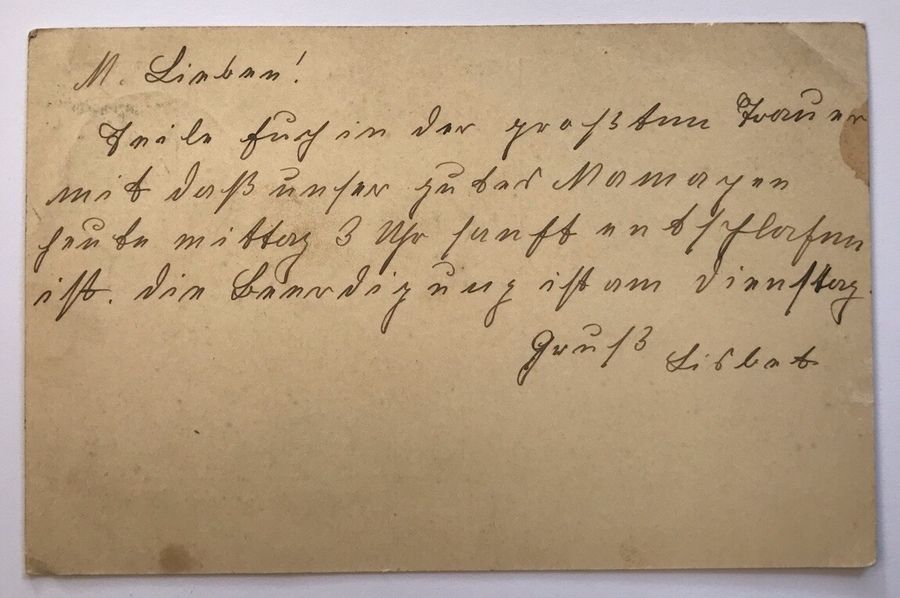 M. Lieben!
Teile Euch in der großten Trauer
mit daß unser gutes Mamagen
heute mittag 3 Uhr sanft entschlafen
ist. die Beerdigung ist am Dienstag.
Gruß Lisbet